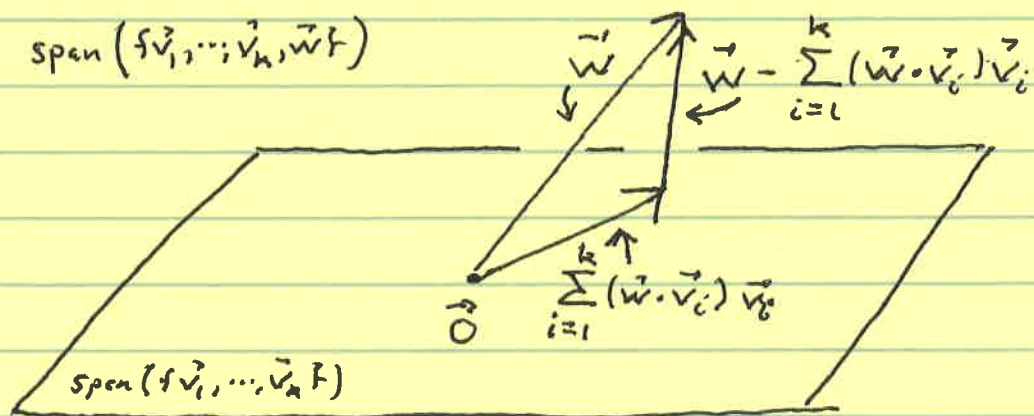 span({v⃗₁,...,v⃗ₖ,w⃗})
w⃗
w⃗ - ∑ᵢ₌₁ᵏ (w⃗·v⃗ᵢ)v⃗ᵢ
∑ᵢ₌₁ᵏ (w⃗·v⃗ᵢ) v⃗ᵢ
0⃗
span({v⃗₁,...,v⃗ₖ})